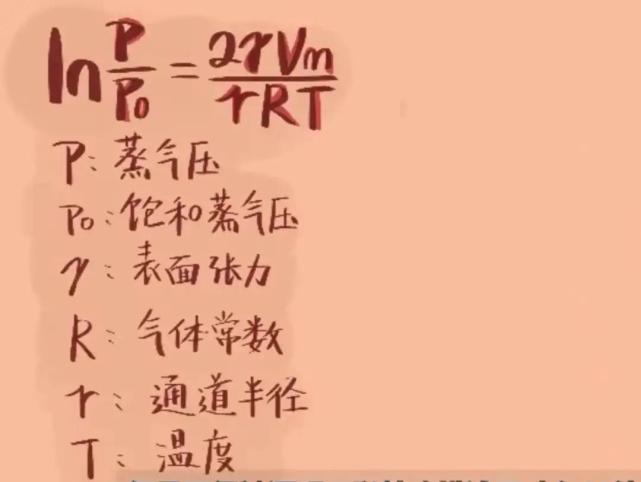 ln P/P₀ = 2γVm/rRT
P: 蒸气压
P₀: 饱和蒸气压
γ: 表面张力
R: 气体常数
r: 通道半径
T: 温度